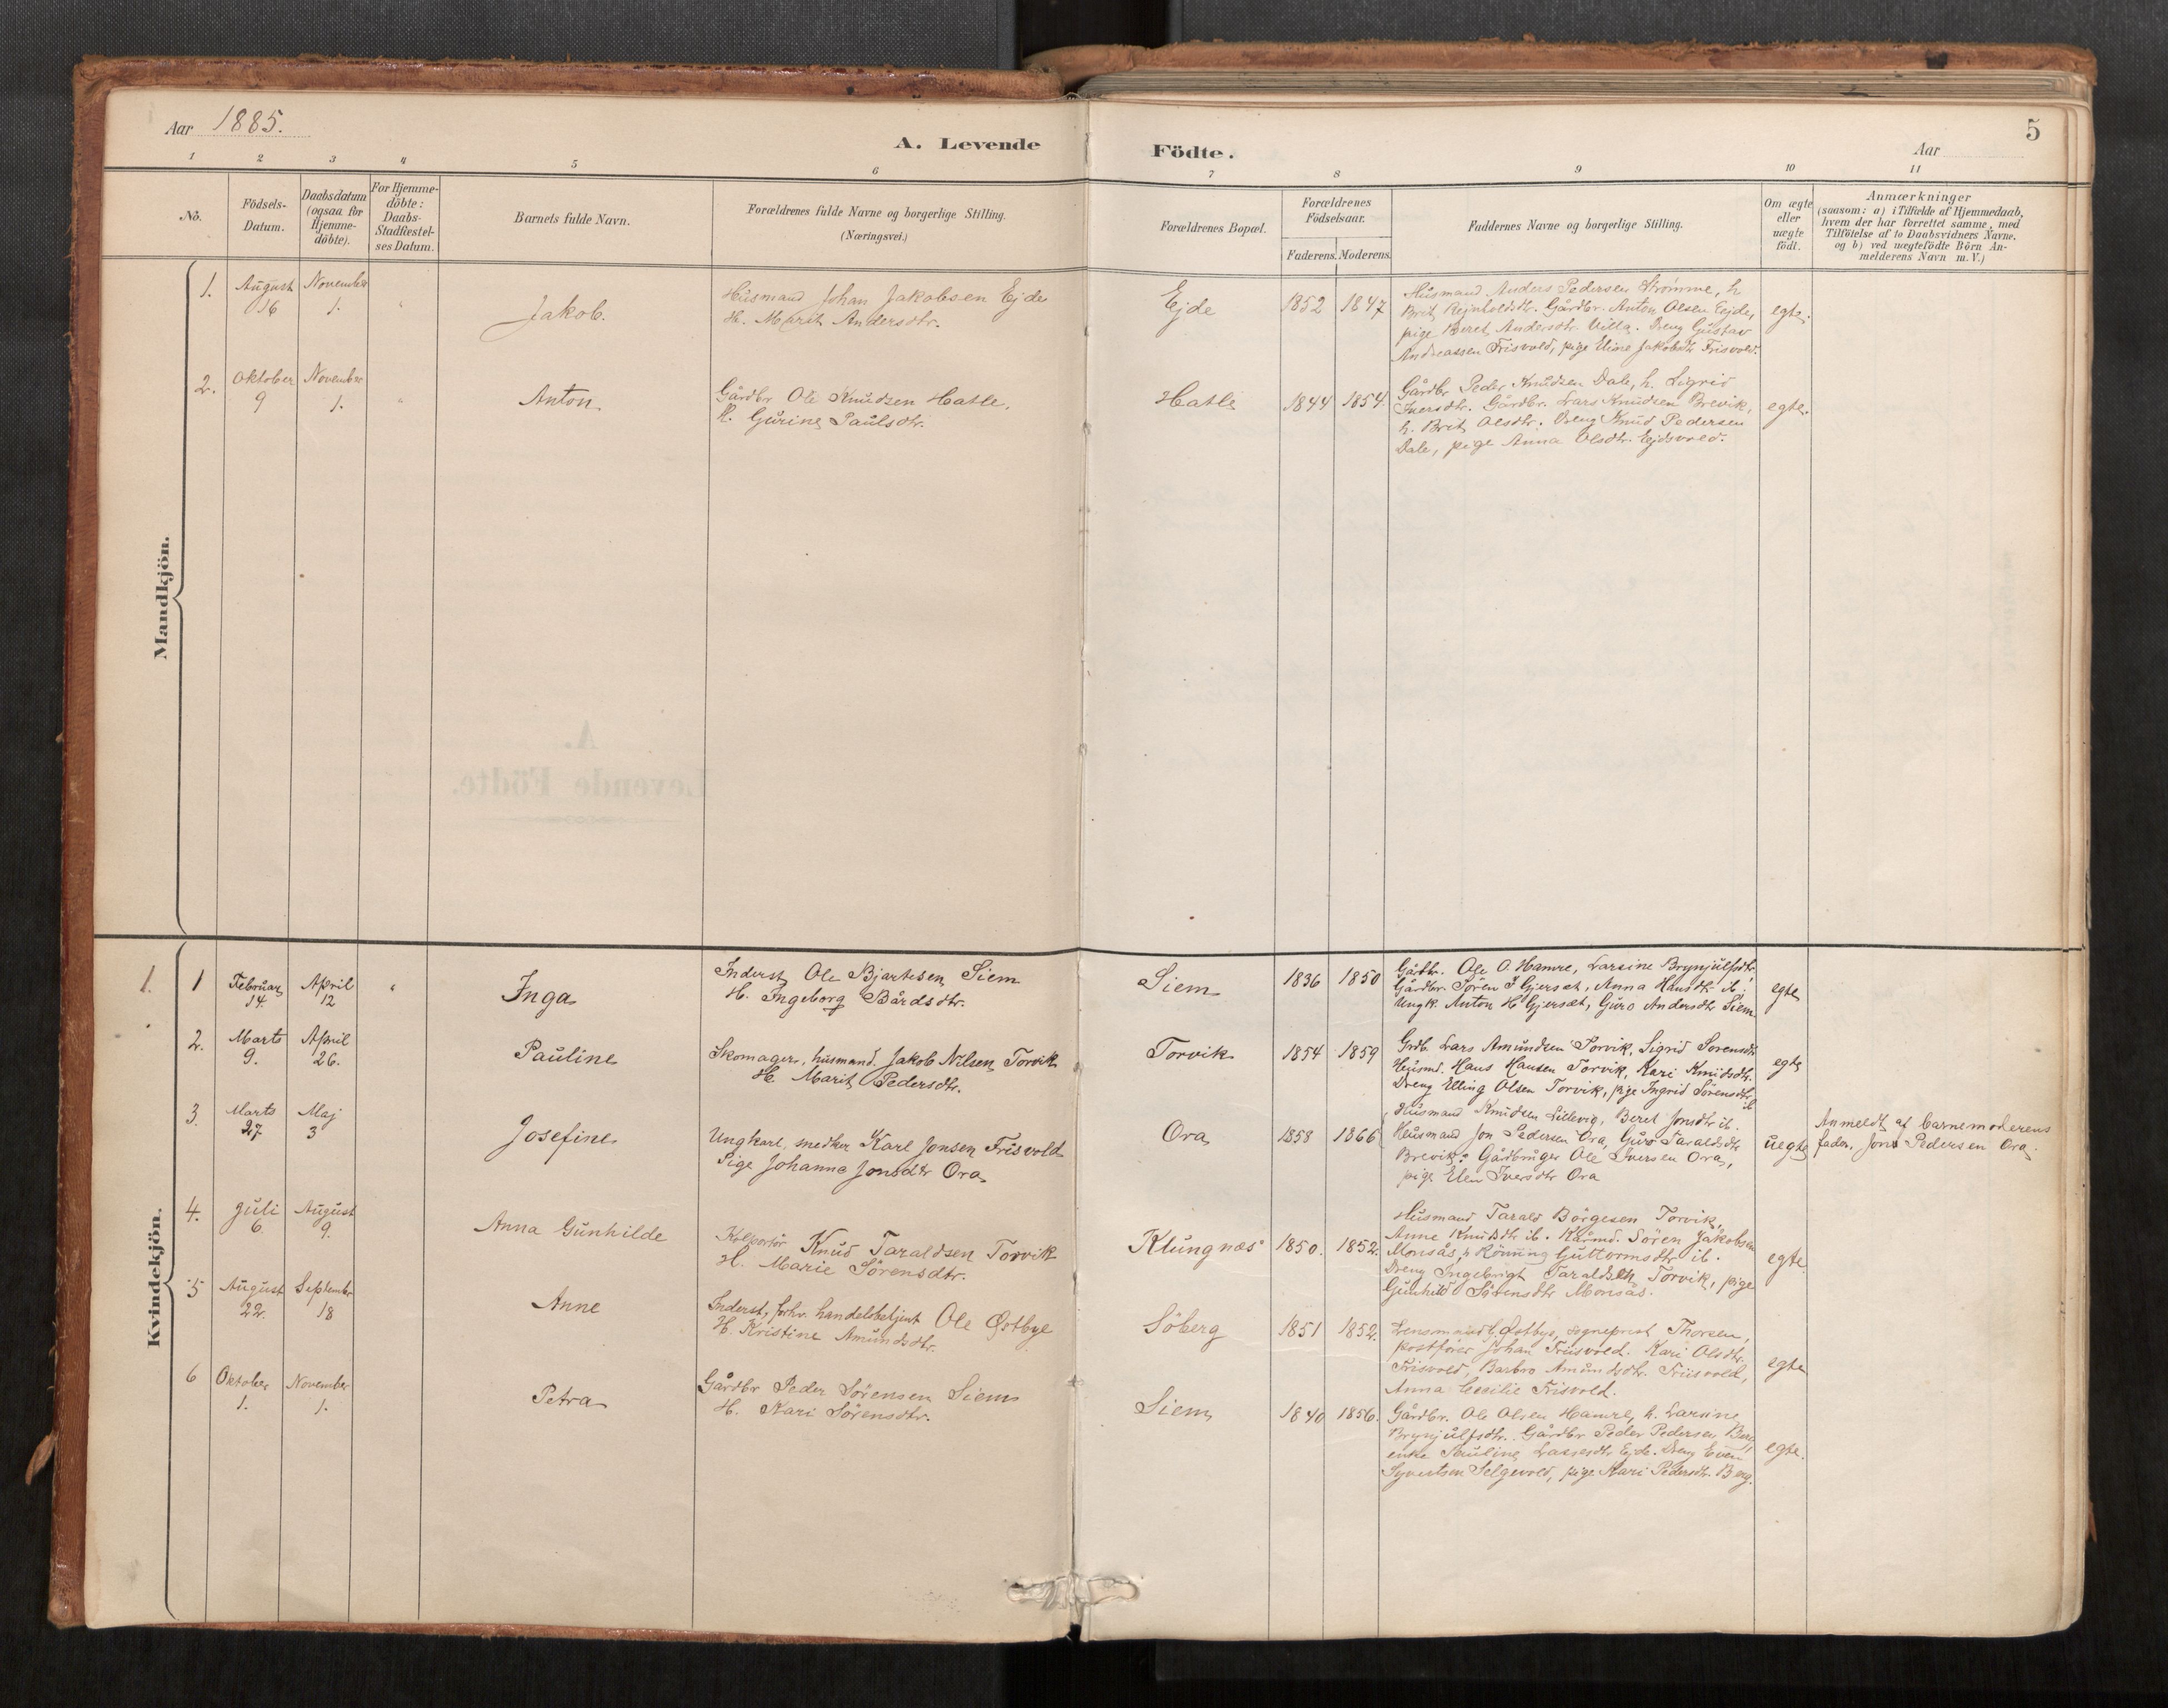 Aar 1885.
A. Levende Födte.
Aar
5
1 2 3 4 5 6 7 8 9 10 11
No.
Födsels-Datum.
Daabsdatum (ogsaa for Hjemme-döbte).
For Hjemme-döbte: Daabs-Stadfæstel-ses Datum.
Barnets fulde Navn.
Forældrenes fulde Navne og borgerlige Stilling.
(Næringsvei.)
Forældrenes Bopæl.
Forældrenes Födselsaar.
Faderens. Moderens.
Faddernes Navne og borgerlige Stilling.
Om ægte eller uægte födt.
Anmærkninger
(saasom: a) i Tilfælde af Hjemmedaab,
hvem der har forrettet samme, med
Tilföielse af to Daabsvidners Navne.
og b) ved uægtefödte Börn An-
melderens Navn m. V.)
Mandkjön.
1. August 16 November 1. "
Jakob.
Husmand Johan Jakobsen Ejde
H. Marit Andersdtr.
Ejde
1852 1847
Husmand Anders Pedersen Strömme, h
Brit Rejnholdsdtr. Gårdbr. Anton Olsen Ejde,
pige Beret Andersdtr. Villa. Dreng Gustav
Andreassen Frisvold, pige Eline Jakobsdtr Frisvold.
egte.
2. Oktober 9 November 1. "
Anton
Gårdbr Ole Knudsen Hatle,
H. Gurine Paulsdtr.
Hatle
1844 1854.
Gårdbr Peder Knudsen Dale, h. Sigrid
Iversdtr. Gårdbr. Lars Knudsen Brevik,
h. Brit Olsdtr. Dreng Knud Pedersen
Dale, pige Anna Olsdtr. Ejdsvold.
egte.
Kvindekjön.
1. 1 Februar 14. April 12 "
Inga
Inderst Ole Bjartesen Siem
H. Ingeborg Bårdsdtr.
Siem
1836 1850
Gårdbr. Ole O. Hamre, Larsine Brynjulfsdtr,
Gårdbr. Sören I Gjersæt, Anna Hansdtr ib.
Ungk. Anton H Gjersæt, Guro Andersdtr Siem
egte
2. Marts 9. April 26.
Pauline
Skomager, husmand. Jakob Nilsen Torvik
H. Marit Pedersdtr.
Torvik
1854 1859
Grdb. Lars Amundsen Torvik, Sigrid Sorensdtr
Husmd. Hans Hansen Torvik, Kari Knudsdtr.
Dreng Elling Olsen Torvik, pige Ingrid Sörensdtr. ib
egte
3. Marts 27. Maj 3
Josefine
Ungkarl, snedker Karl Jonsen Frisvold
Pige Johanna Jonsdtr Ora
Ora
1858 1866
Husmand Knudsen Lillevig, Beret Jonsdtr ib.
Husmand Jon Pedersen Ora, Guro Taraldsdtr
Brevik. Gårdbruger Ole Iversen Ora,
pige Elen Iversdtr Ora
uegte
Anmeldt af barnemoderens
fader, Jon Pedersen Ora.
4. Juli 6. August 9.
Anna Gunhilde
Kolportör Knud Taraldsen Torvik
H. Marie Sörensdtr.
Klungnæs
1850. 1852.
Husmand Tarald Börgesen Torvik,
Anne Knudsdtr ib. Kårmd. Sören Jakobsen
Monsås, h Rönning Guttormsdtr ib.
Dreng Ingebrigt Taraldsen Torvik, pige
Gunhild Sörensdtr Monsås.
egte.
5 August 22. September 18
Anne
Inderst, forhv. handelsbetjent Ole Østbye
H. Kristine Amundsdtr.
Söberg
1851 1852.
Lensmand Østbye, sogneprest Thorsen,
postförer Johan Friisvold. Kari Olsdtr.
Frisvold, Barbro Amundsdtr. Friisvold,
Anna Cecilie Frisvold.
egte
6 Oktober 1. November 1.
Petra
Gårdbr Peder Sörensen Siem
H. Kari Sörensdtr.
Siem
1840 1856.
Gårdbr. Ole Olsen Hamre, h. Larsine
Brynjulfsdtr. Gårdbr Peder Pedersen Berg,
enke Pauline Lassesdtr Ejde. Dreng Even
Syvertsen Selgevold, pige Kari Pedersdtr. Berg.
egte.